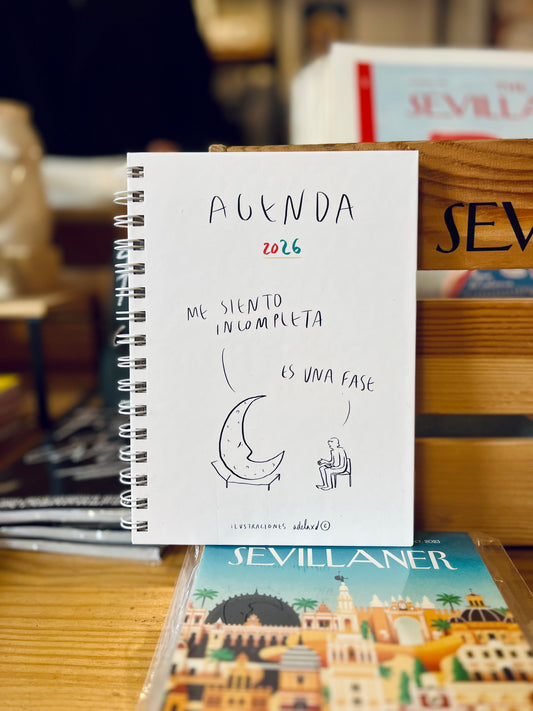 THE
SEVILLA
SEV
AGENDA
2026
ME SIENTO
INCOMPLETA
ES UNA FASE
ILUSTRACIONES adelaxd ©
SEVILLANER